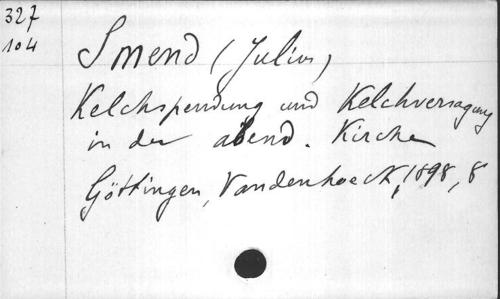 327
104
Smend (Julius)
Kelchspendung und Kelchversagung
in der abend. Kirche
Göttingen, Vandenhoeck, 1898, 8